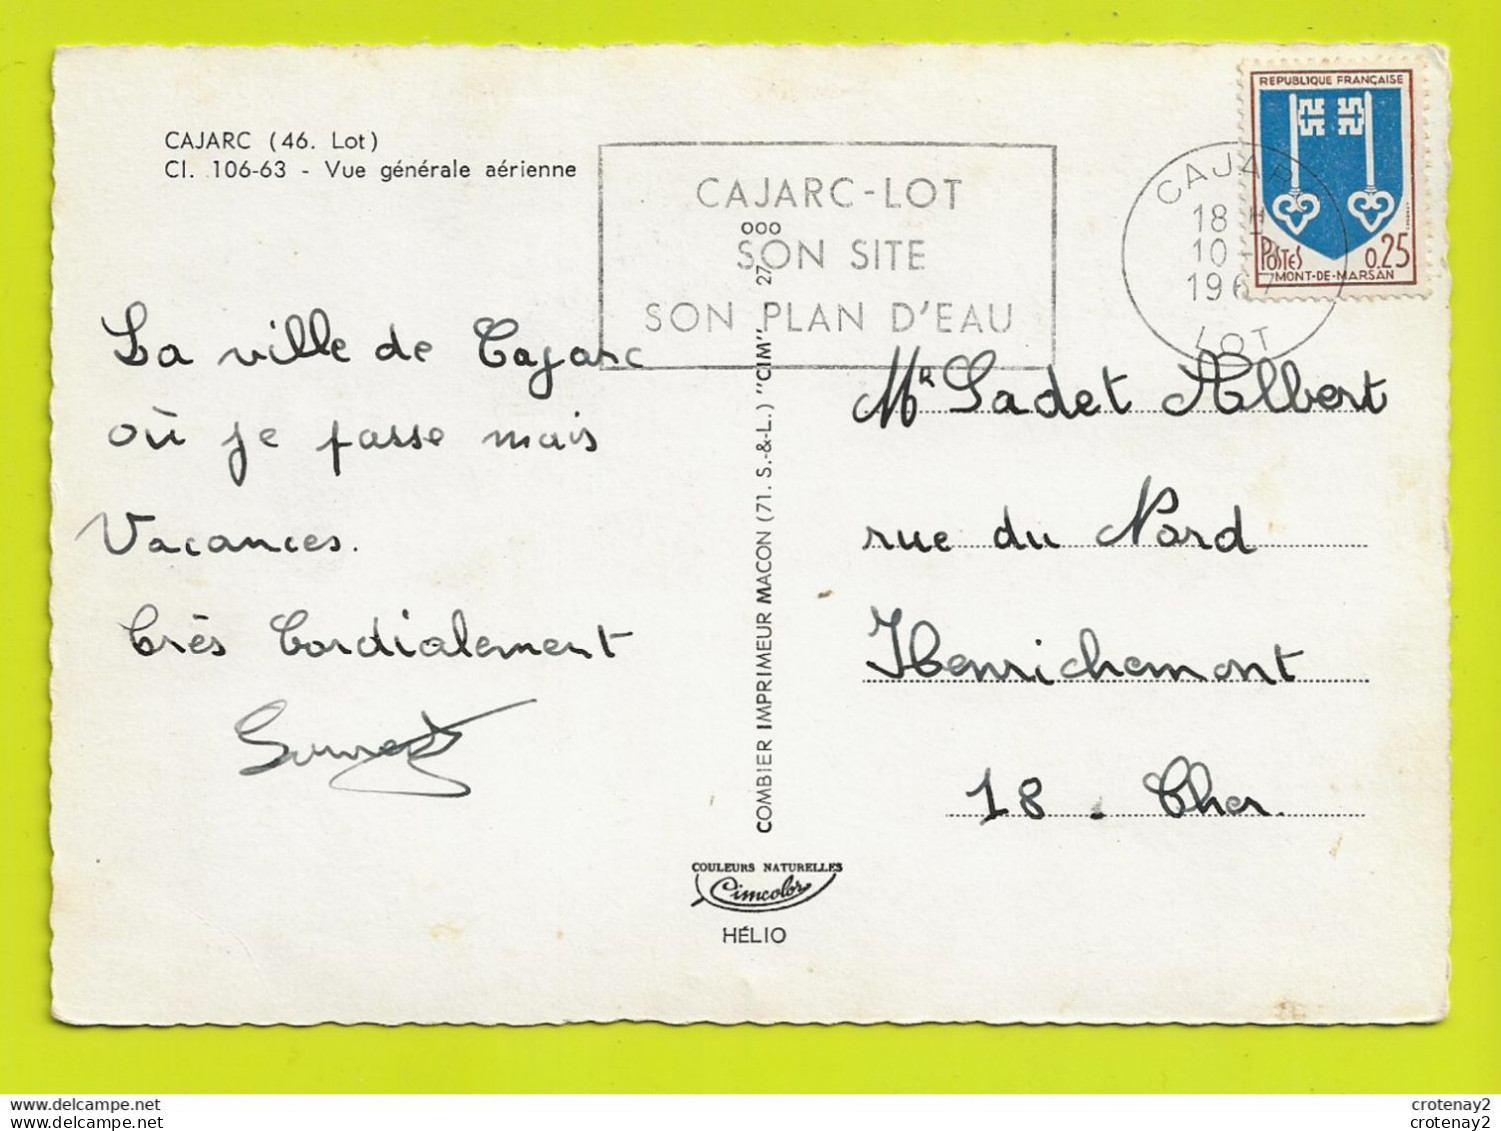 CAJARC (46. Lot)
Cl. 106-63 - Vue générale aérienne
La ville de Cajarc
où je passe mais
Vacances.
Très Cordialement
CAJARC-LOT
SON SITE
SON PLAN D'EAU
COMBIER IMPRIMEUR MACON (71. S.-&-L.) "CIM" - 27
ooo
COULEURS NATURELLES
Cimcolor
HÉLIO
REPUBLIQUE FRANÇAISE
POSTES 0.25
MONT-DE-MARSAN
CAJARC
18 H
10 -
1967
LOT
Mr Sadet Albert
rue du Nord
Henrichemont
18. Cher.
delcampe.net
delcampe.net
crotenay2
crotenay2